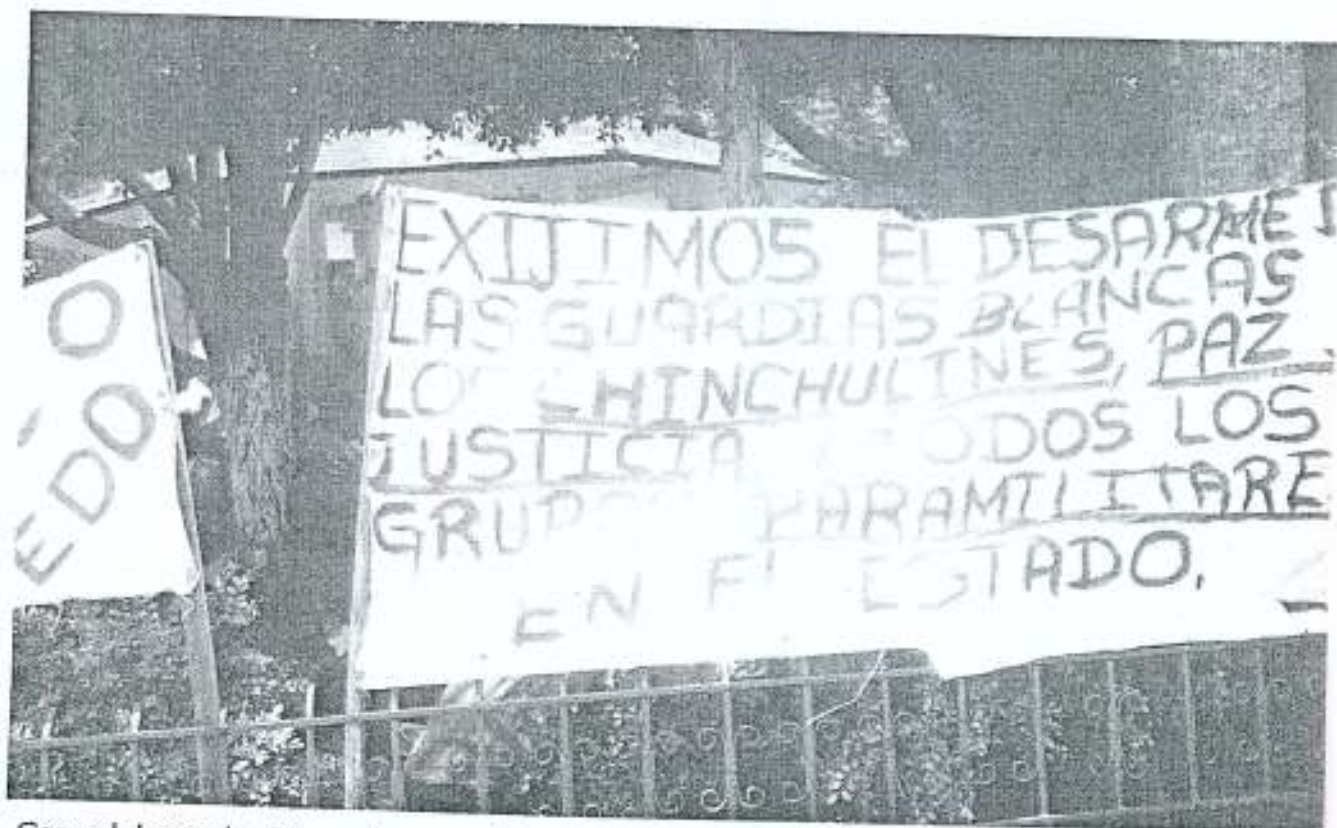 O
EDO
EXIJIMOS EL DESARME
LAS GUARDIAS BLANCAS
LOS CHINCHULINES, PAZ
JUSTICIA TODOS LOS
GRUPOS PARAMILITARE
EN EL ESTADO.